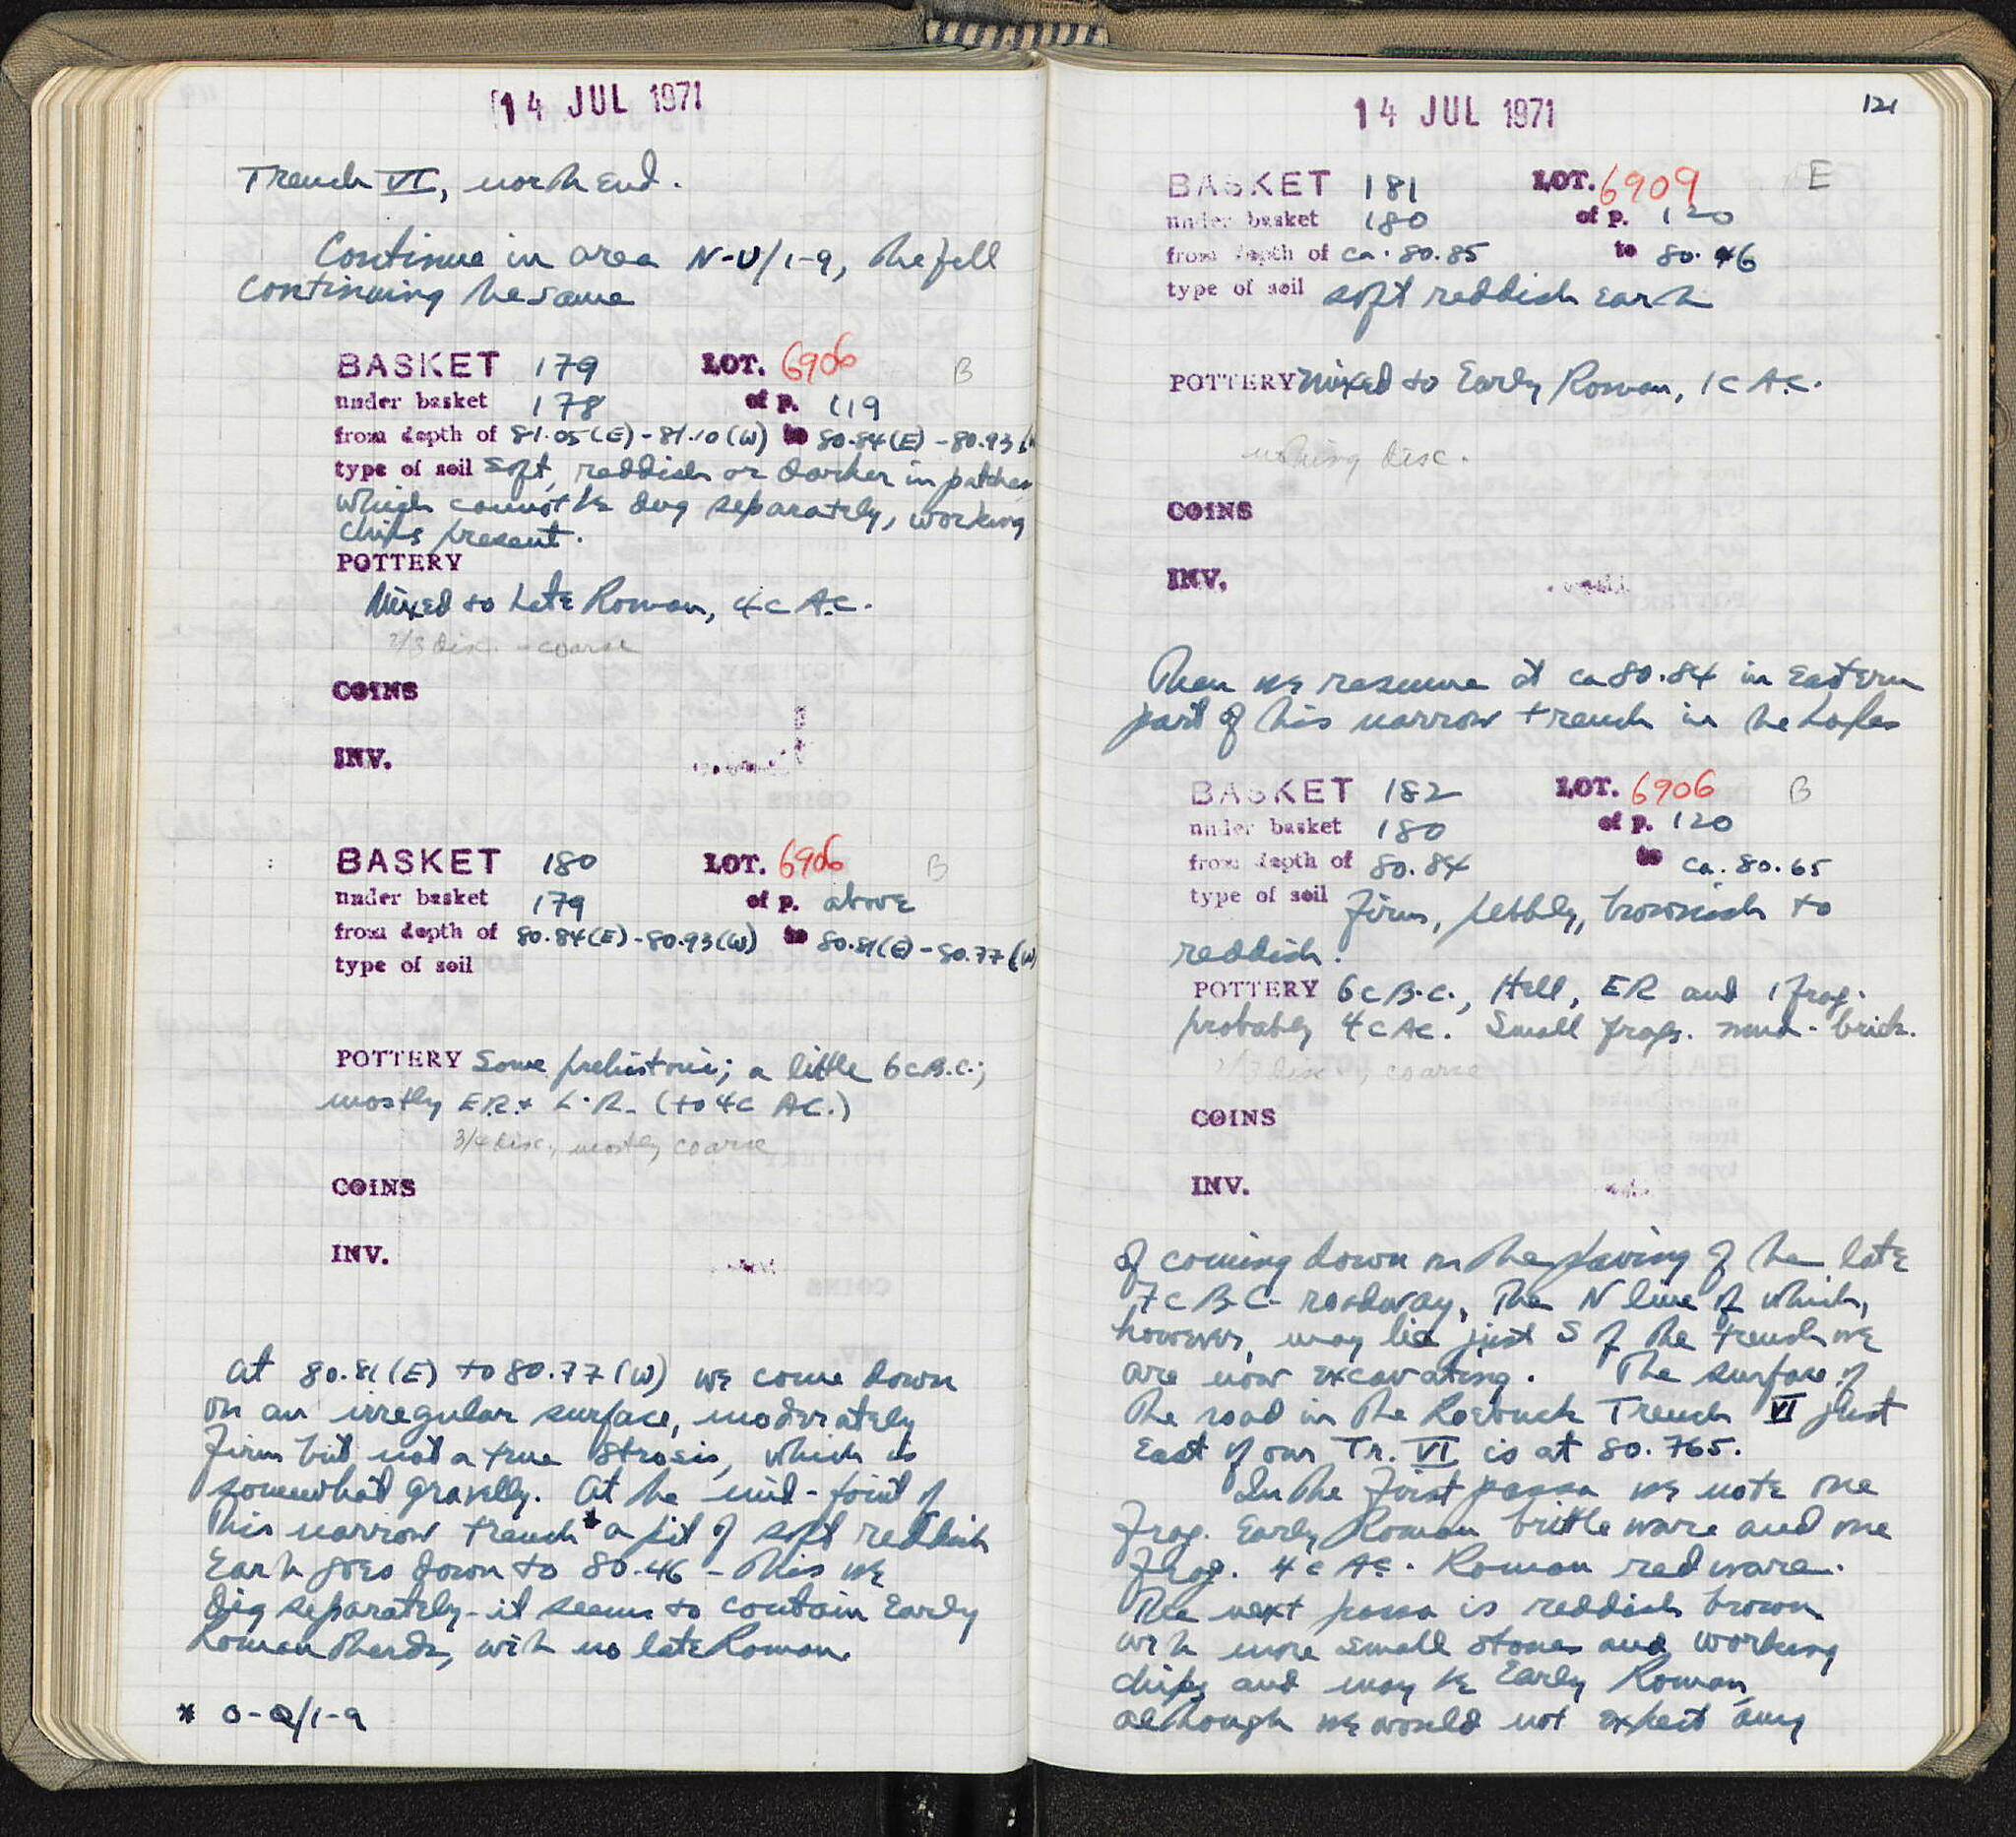 14 JUL 1971
Trench VI, north end.
Continue in area N-U/1-9, the fill
continuing the same
BASKET 179 LOT. 6906 B
under basket 178 of p. 119
from depth of 81.05(E)-81.10(W) to 80.84(E)-80.93(W
type of soil soft, reddish or darker in patches
which cannot be dug separately, working
chips present.
POTTERY
Mixed to Late Roman, 4c A.C.
2/3 disc. - coarse
COINS
INV.
BASKET 180 LOT. 6906 B
under basket 179 of p. above
from depth of 80.84(E)-80.93(W) to 80.81(E)-80.77(W)
type of soil
POTTERY Some prehistoric; a little 6c B.C.;
mostly E.R. + L.R. (to 4c AC.)
3/4 disc., mostly coarse
COINS
INV.
At 80.81(E) to 80.77(W) we come down
on an irregular surface, moderately
firm but not a true strosis, which is
somewhat gravelly. At the mid-point of
this narrow trench * a pit of soft reddish
earth goes down to 80.46 - this we
dig separately - it seems to contain Early
Roman sherds, with no late Roman.
* O-Q/1-9
14 JUL 1971
121
BASKET 181 LOT. 6909 E
under basket 180 of p. 120
from depth of ca. 80.85 to 80.46
type of soil soft reddish earth
POTTERY Mixed to Early Roman, 1c A.C.
nothing disc.
COINS
INV.
Then we resume at ca 80.84 in Eastern
part of this narrow trench in the hopes
BASKET 182 LOT. 6906 B
under basket 180 of p. 120
from depth of 80.84 to ca. 80.65
type of soil firm, pebbly, brownish to
reddish.
POTTERY 6c B.C., Hell, ER and 1 frag.
probably 4c AC. Small frags. mud-brick.
2/3 disc, coarse
COINS
INV.
of coming down on the paving of the late
7c B.C. roadway, the N line of which,
however, may lie just S of the trench we
are now excavating. The surface of
the road in the Roebuck Trench VI just
East of our Tr. VI is at 80.765.
In the first passa we note one
frag. Early Roman brittle ware and one
frag. 4c AC. Roman red ware.
The next passa is reddish brown
with more small stones and working
chips and may be Early Roman,
although we would not expect any